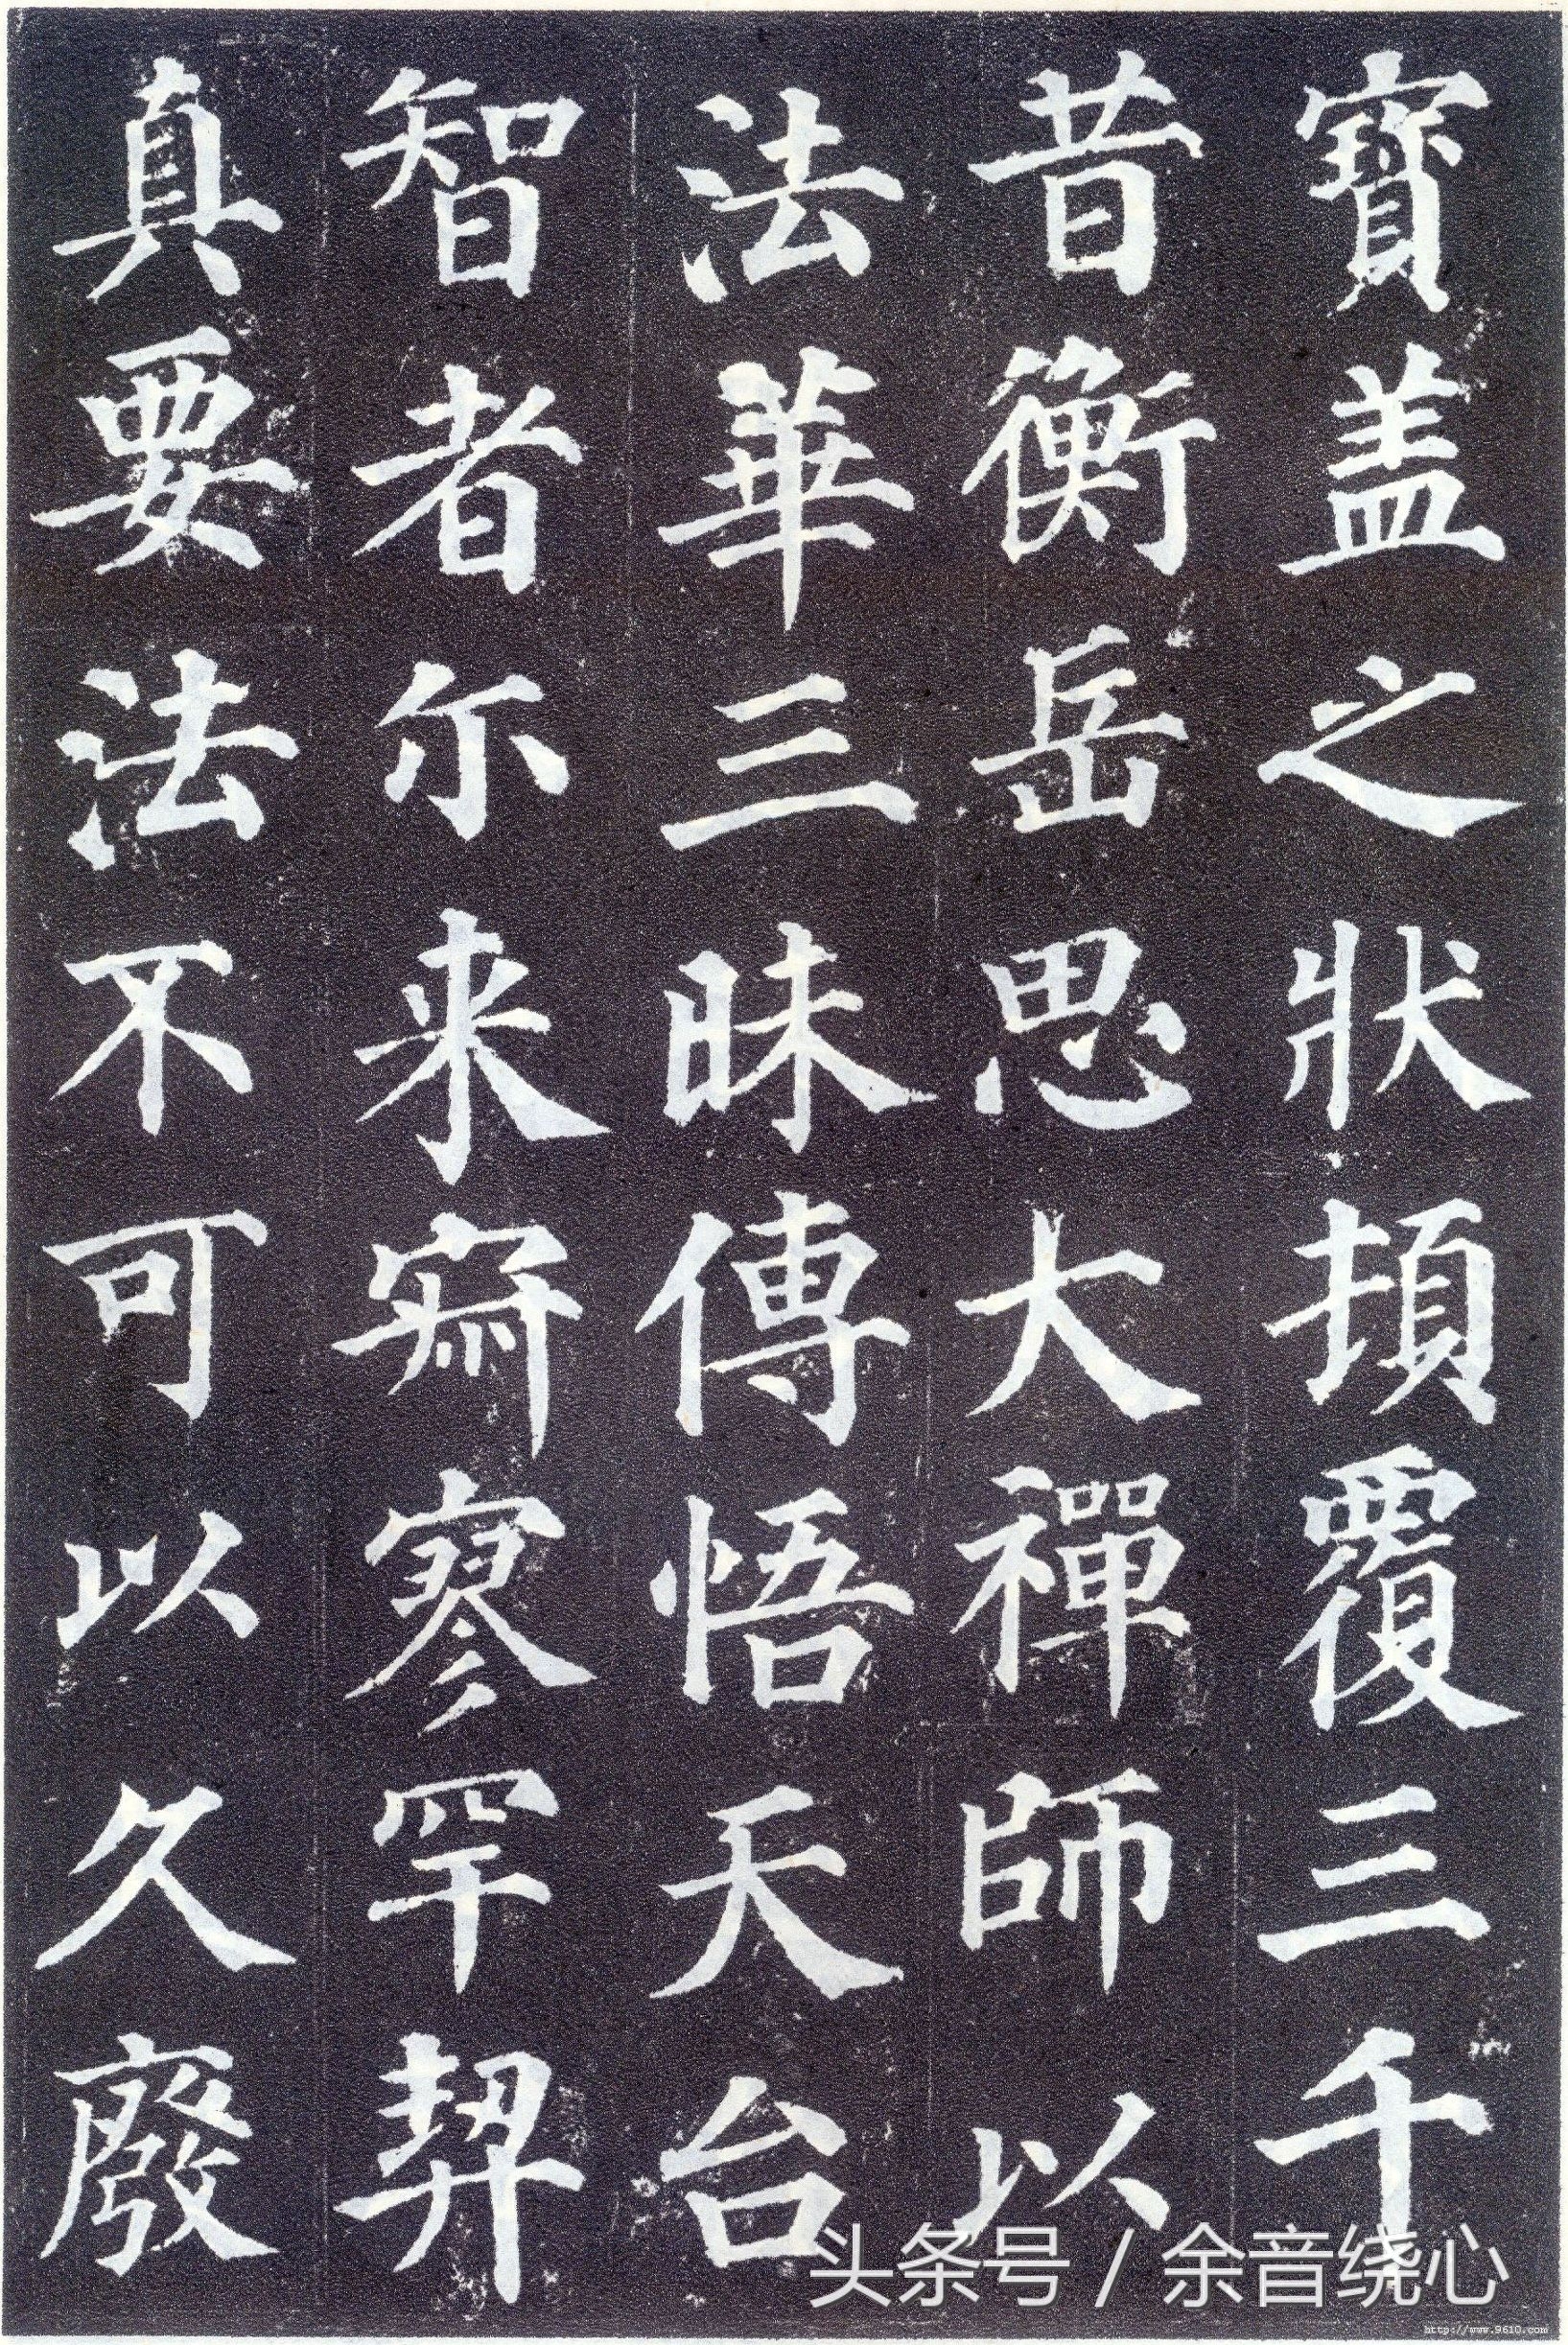 寶盖之狀頓覆三千
昔衡岳思大禪師以
法華三昧傳悟天台
智者尒来寂寥罕契
真要法不可以久廢
头条号 / 余音绕心
http://www.9610.com